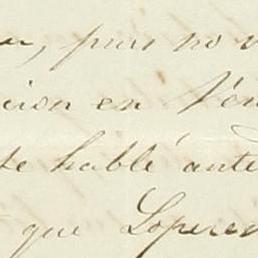 pues no v
cion en Ven
te hablé ante
que Loperen